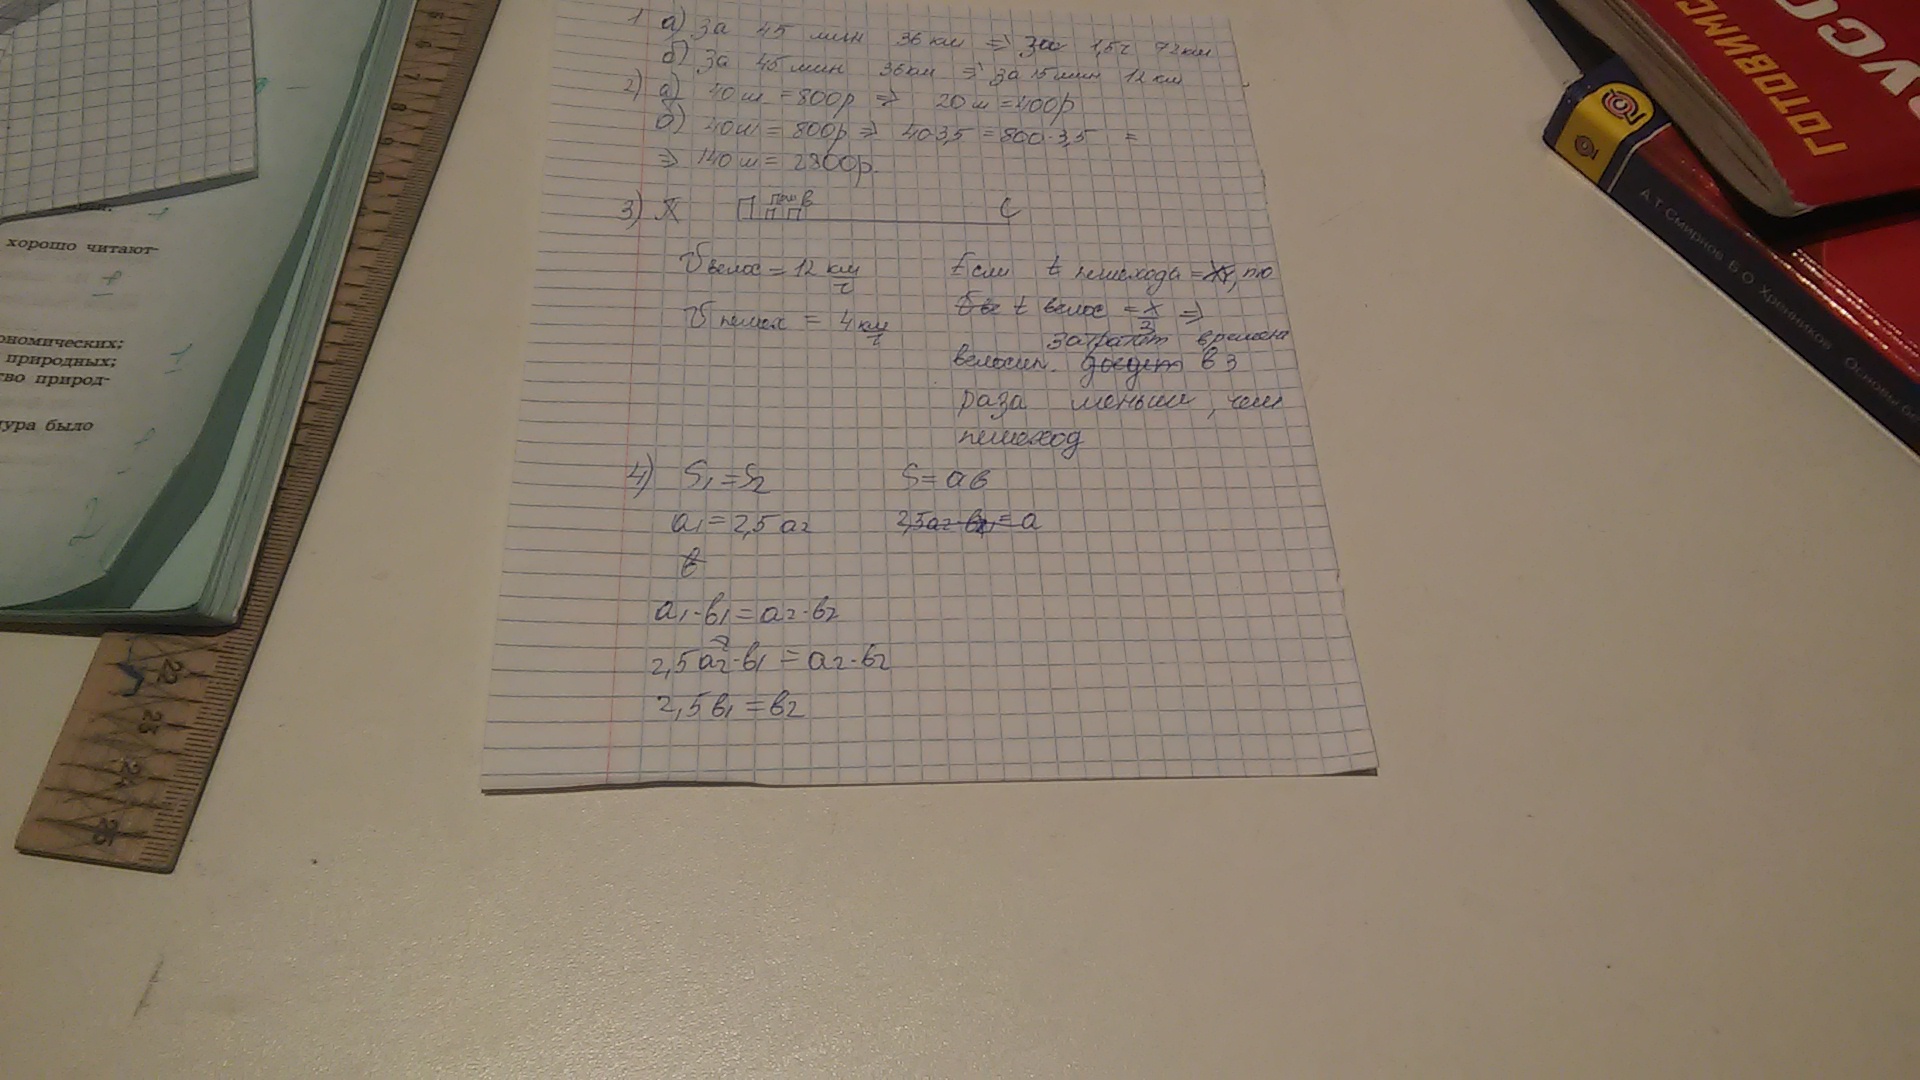 1 а) за 45 мин 36 км ⇒ за 1,5ч 72км
б) За 45 мин 36км ⇒ за 15 мин 12 км
2) а) 40 ш = 800р ⇒ 20 ш = 400р
б) 40ш = 800р ⇒ 40·3,5 = 800·3,5 =
⇒ 140 ш = 2800р.
3) П В С
V велос = 12 км/ч
V пешех = 4 км/ч
Если t пешехода = x, то
t велос = x/3 ⇒
затратит времени
велосип. доедет в 3
раза меньше, чем
пешеход
4) S1 = S2 S = ab
a1 = 2,5 a2 2,5a2·b1 = a
b
a1·b1 = a2·b2
2,5a2·b1 = a2·b2
2,5b1 = b2
хорошо читают-
ономических;
природных;
тво природ-
тура было
22
23
24
25
ГОТОВИМС
РУСС
А.Т. Смирнов Б.О. Хренников Основы без